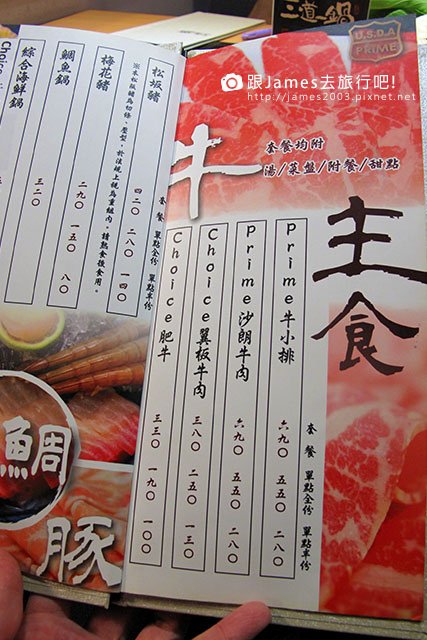 三道一鍋
U.S.D.A
PRIME
跟James去旅行吧!
http://james2003.pixnet.net
主食
牛
套餐均附
湯/菜盤/附餐/甜點
套餐 單點全份 單點半份
Prime牛小排 六九〇 五五〇 二八〇
Prime沙朗牛肉 六九〇 五五〇 二八〇
Choice翼板牛肉 三八〇 二五〇 一三〇
Choice肥牛 三三〇 一九〇 一〇〇
套餐 單點全份 單點半份
松坂豬 四二〇 二八〇 一四〇
※本松坂豬為切條、壓型,於法規上視為重組肉,請熟食後食用。
梅花豬 二九〇 一五〇 八〇
鯛魚鍋 三二〇
綜合海鮮鍋
Choice
鯛
豚